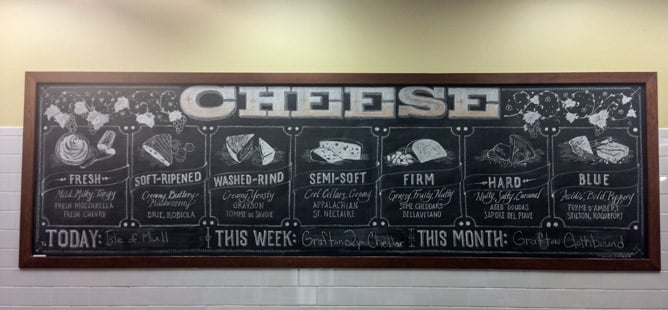 CHEESE
FRESH
Mild, Milky, Tangy
FRESH MOZZARELLA
FRESH CHEVRE
SOFT-RIPENED
Creamy, Buttery
Mushroomy
BRIE, ROBIOLA
WASHED-RIND
Creamy, Yeasty
GRAYSON
TOMME DE SAVOIE
SEMI-SOFT
Cool Cellars, Creamy
APPALACHIAN
ST. NECTAIRE
FIRM
Grassy, Fruity, Nutty
CHEDDARS
BELLAVITANO
HARD
Nutty, Salty, Caramel
AGED GOUDAS
SAPORE DEL PIAVE
BLUE
Bold, Peppery
FORME D'AMBERT
STILTON, ROQUEFORT
TODAY: Isle of Mull
THIS WEEK: Grafton 2yr Cheddar
THIS MONTH: Grafton Clothbound